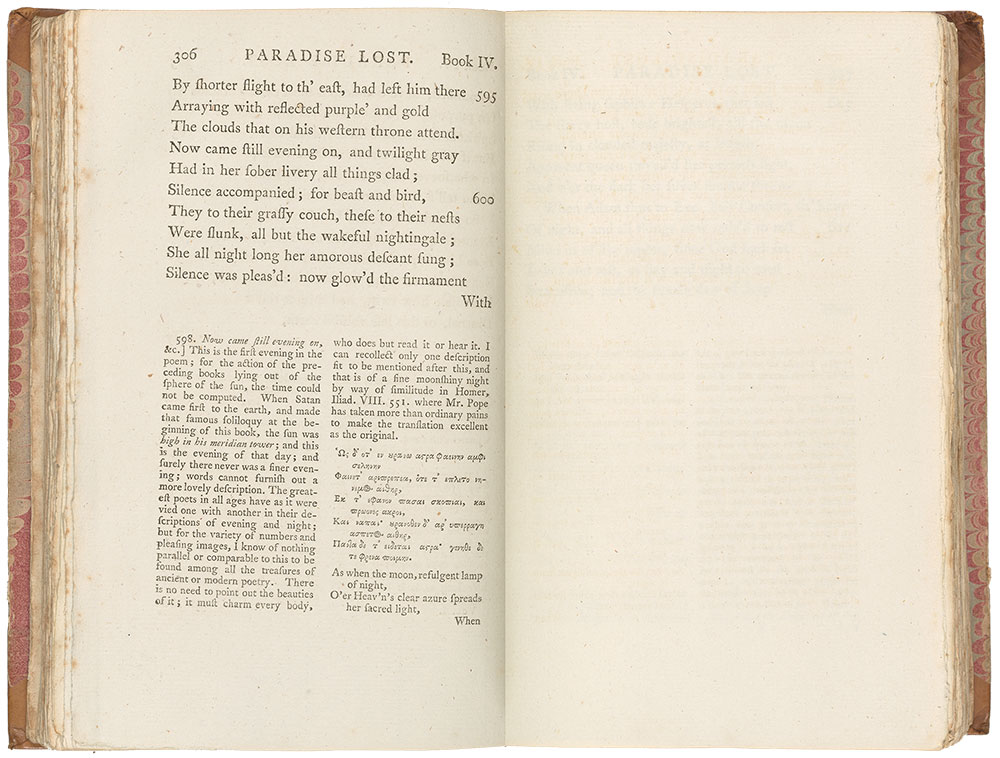 306 PARADISE LOST. Book IV.
By ſhorter flight to th' eaſt, had left him there 595
Arraying with reflected purple' and gold
The clouds that on his weſtern throne attend.
Now came ſtill evening on, and twilight gray
Had in her ſober livery all things clad;
Silence accompanied; for beaſt and bird, 600
They to their graſſy couch, theſe to their neſts
Were ſlunk, all but the wakeful nightingale;
She all night long her amorous deſcant ſung;
Silence was pleas'd: now glow'd the firmament
With
598. Now came ſtill evening on,
&c.] This is the firſt evening in the
poem; for the action of the pre-
ceding books lying out of the
ſphere of the ſun, the time could
not be computed. When Satan
came firſt to the earth, and made
that famous ſoliloquy at the be-
ginning of this book, the ſun was
high in his meridian tower; and this
is the evening of that day; and
ſurely there never was a finer even-
ing; words cannot furniſh out a
more lovely deſcription. The great-
eſt poets in all ages have as it were
vied one with another in their de-
ſcriptions of evening and night;
but for the variety of numbers and
pleaſing images, I know of nothing
parallel or comparable to this to be
found among all the treaſures of
ancient or modern poetry. There
is no need to point out the beauties
of it; it muſt charm every body,
who does but read it or hear it. I
can recollect only one deſcription
fit to be mentioned after this, and
that is of a fine moonſhiny night
by way of ſimilitude in Homer,
Iliad. VIII. 551. where Mr. Pope
has taken more than ordinary pains
to make the tranſlation excellent
as the original.
Ὡς δ' οτ' εν ȣρανω αϛρα φαεινην αμφι
σεληνην
Φαινετ' αριπρεπεα, ὁτε τ' επλετο νη-
νεμος αιθηρ,
Εκ τ' εφανον πασαι σκοπιαι, και
πρωονες ακροι,
Και ναπαι· ȣρανοθεν δ' αρ' υπερραγη
ασπετος αιθηρ,
Πανlα δε τ' ειδεται αϛρα· γεγηθε δε
τε φρενα ποιμην.
As when the moon, refulgent lamp
of night,
O'er Heav'n's clear azure ſpreads
her ſacred light,
When